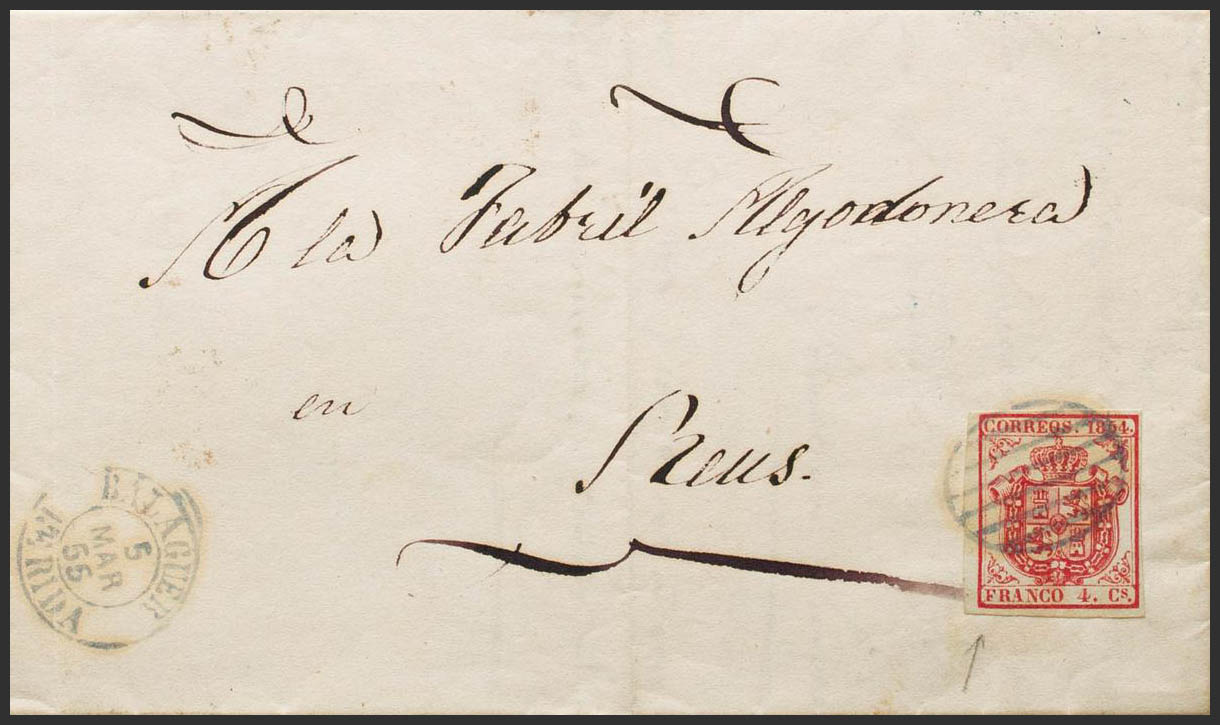 A la Fabril Algodonera
en Reus.
CORREOS. 1854.
FRANCO 4. Cs.
BALAGUER
5
MAR
55
LERIDA